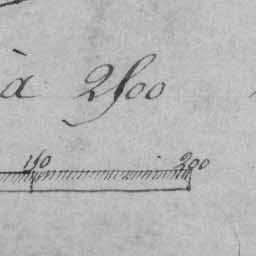 à 2500
150 200